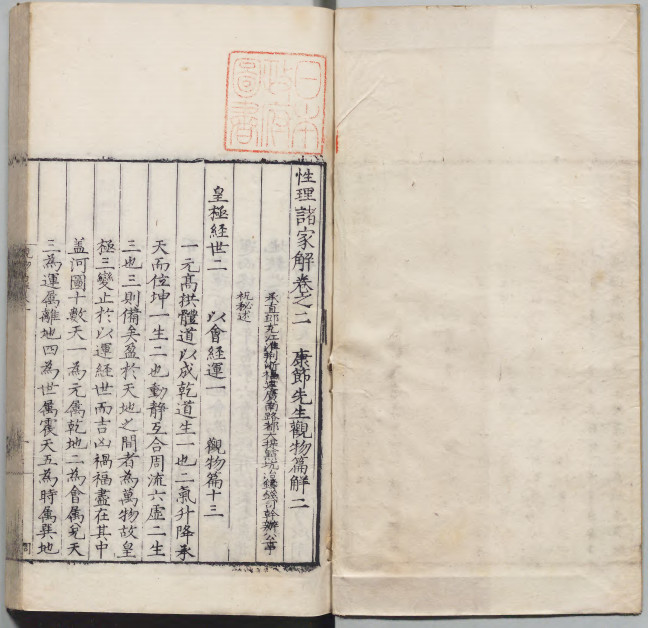 日本
政府
圖書
性理諸家解卷之二 康節先生觀物篇解二
承直郎充江淮荊浙福建廣南路都大提點坑冶鑄錢司幹辦公事
祝秘述
皇極經世二 以會經運一 觀物篇十三
一元髙拱體道以成乾道生一也二氣升降承
天而位坤一生二也動静互合周流六虛二生
三也三則備矣盈於天地之間者為萬物故皇
極三變止於以運經世而吉凶禍福盡在其中
蓋河圖十數天一為元属乾地二為會属兌天
三為運属離地四為世属震天五為時属巽地